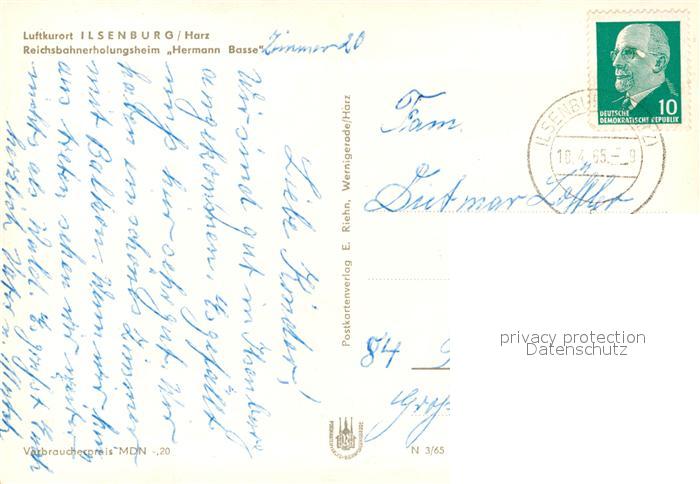 Luftkurort ILSENBURG/Harz
Reichsbahnerholungsheim „Hermann Basse"
Zimmer 20
Liebe Kinder!
Wir sind gut in Ilsenburg
angekommen. Es gefällt
uns hier sehr gut. Wir
haben ein schönes Zimmer
mit Balkon, wenn wir
aus treten sehen wir weiter
nichts als Wald. Es grüßt Euch
herzlich Vater u. Mutti
Verbraucherpreis MDN -,20
Postkartenverlag E. Riehn, Wernigerode/Harz
N 3/65
10
DEUTSCHE
DEMOKRATISCHE REPUBLIK
ILSENBURG
18.4.65.-9
Fam.
Dietmar Löffler
84
privacy protection
Datenschutz